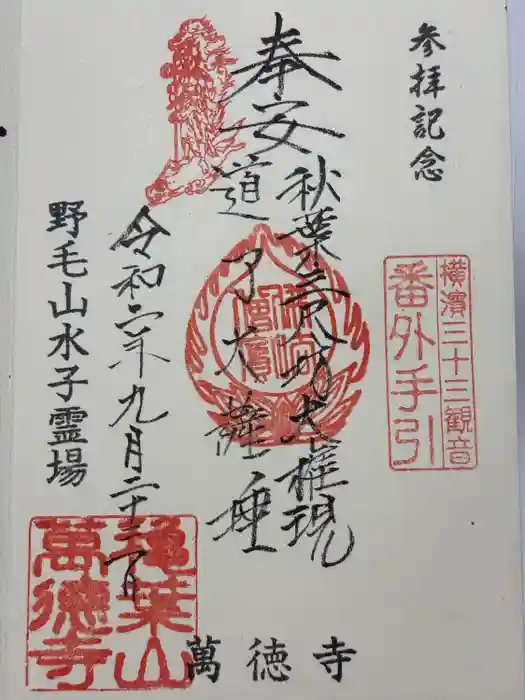 参拝記念
横濱三十三観音
番外手引
奉安
秋葉三尺坊大権現
道了大薩埵
令和六年九月二十二日
野毛山水子霊場
萬徳寺
萬徳寺